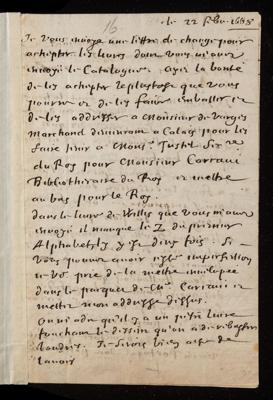 16
le 22 febvr 1668
Je vous envoye une lettre de change pour
achepter les livres dont vous m'avez
envoyé le Catalogue. ayez la bonté
de les achepter le plustost que vous
pourrez et de les faire emballer et
de les addresser a Monsieur de
Marchand demeurant a Calais pour les
faire tenir a Monsr Justel Secre
du Roy pour Monsieur Carcavi
Bibliothecaire du Roy et mettre
au bas pour le Roy.
dans le livre de Willis que vous m'avez
envoyé il manque le Z du premier
Alphabet et il y a Y deux fois. Si
vous pouvez avoir cette imperfection
je vo' prie de la mettre enveloppée
dans le pacquet de Mr Carcavi et
mettre mon addresse dessus.
on m'a dit qu'il y a un petit livre
touchant le dessein qu'on a de rebastir
Londres. Je serois bien aise de
l'avoir